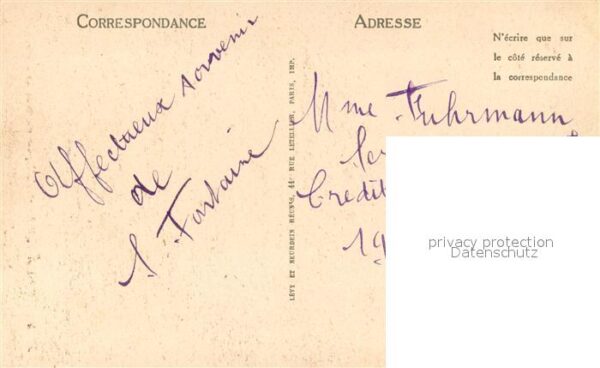 CORRESPONDANCE
ADRESSE
N'écrire que sur
le côté réservé à
la correspondance
Affectueux souvenir
de
S. Fontaine
LÉVY ET NEURDEIN RÉUNIS, 44, RUE LETELLIER, PARIS, IMP.
Mme Fuhrmann
Crédit
19
privacy protection
Datenschutz